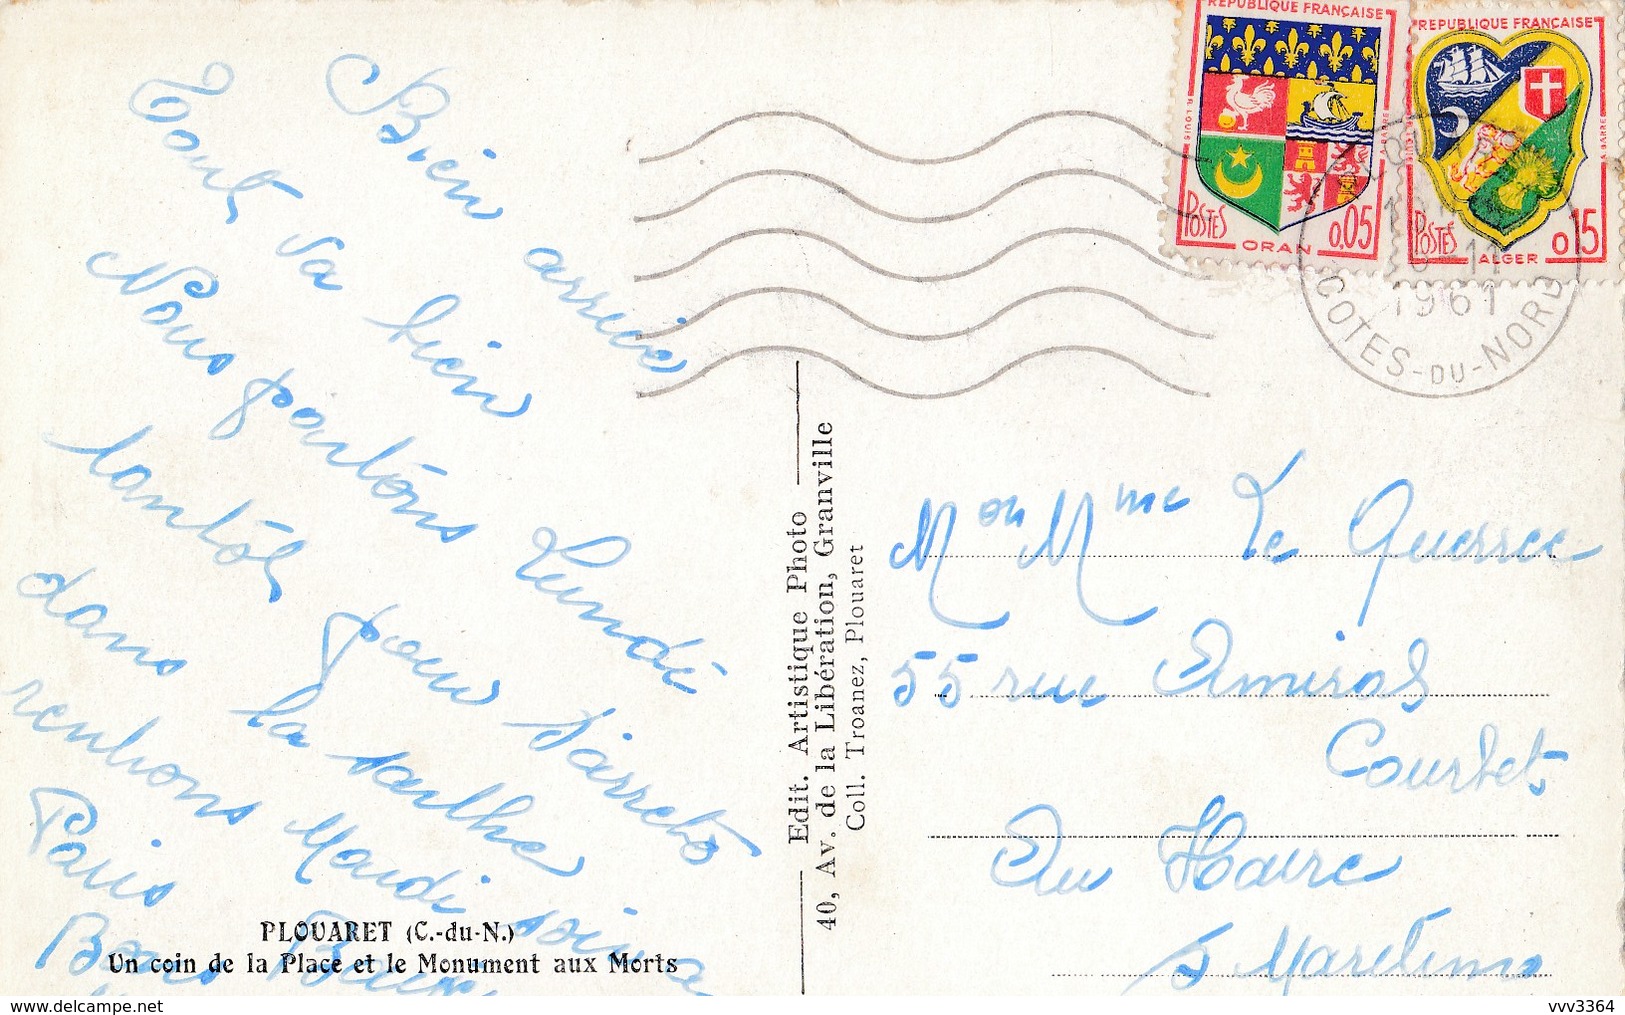 Bien arrivée
Tout va bien
Nous partons Lundi
tantôt pour
dans la Sarthe
rentrons Mardi soir a
Paris
Bons Baisers
PLOUARET (C.-du-N.)
Un coin de la Place et le Monument aux Morts
Edit. Artistique Photo
40, Av. de la Libération, Granville
Coll. Troanez, Plouaret
REPUBLIQUE FRANÇAISE
POSTES 0,05
ORAN
REPUBLIQUE FRANÇAISE
POSTES 0,15
ALGER
1961
COTES-DU-NORD
Mon Mme Le Querrec
55 rue Amiral
Courbet
Au Havre
S Maritime
delcampe.net
vvv3364